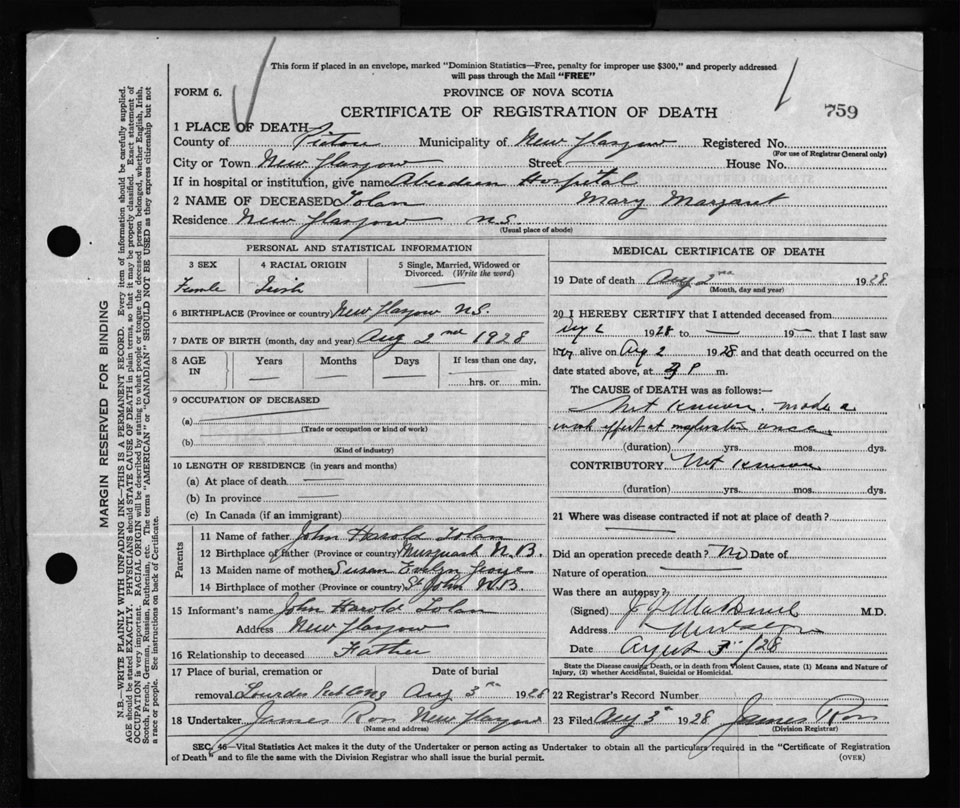 This form if placed in an envelope, marked "Dominion Statistics—Free, penalty for improper use $300," and properly addressed
will pass through the Mail "FREE"
FORM 6.
PROVINCE OF NOVA SCOTIA
CERTIFICATE OF REGISTRATION OF DEATH
759
1 PLACE OF DEATH
County of Pictou Municipality of New Glasgow Registered No.
(For use of Registrar General only)
City or Town New Glasgow Street House No.
If in hospital or institution, give name Aberdeen Hospital
2 NAME OF DECEASED Tolan Mary Margaret
Residence New Glasgow N.S.
(Usual place of abode)
PERSONAL AND STATISTICAL INFORMATION
3 SEX 4 RACIAL ORIGIN 5 Single, Married, Widowed or
Divorced. (Write the word)
Female Irish
6 BIRTHPLACE (Province or country) New Glasgow N.S.
7 DATE OF BIRTH (month, day and year) Aug 2nd 1928
8 AGE IN Years Months Days If less than one day,
hrs. or min.
9 OCCUPATION OF DECEASED
(a)
(Trade or occupation or kind of work)
(b)
(Kind of industry)
10 LENGTH OF RESIDENCE (in years and months)
(a) At place of death
(b) In province
(c) In Canada (if an immigrant)
Parents
11 Name of father John Harold Tolan
12 Birthplace of father (Province or country) Musquash N.B.
13 Maiden name of mother Susan Evelyn
14 Birthplace of mother (Province or country) St John N.B
15 Informant's name John Harold Tolan
Address New Glasgow
16 Relationship to deceased Father
17 Place of burial, cremation or Date of burial
removal Lourdes Aug 3rd 1928
18 Undertaker James Ross New Glasgow
(Name and address)
MEDICAL CERTIFICATE OF DEATH
19 Date of death Aug 2nd 1928
(Month, day and year)
20 I HEREBY CERTIFY that I attended deceased from
1928 to — 19— that I last saw
alive on Aug 2 1928 and that death occurred on the
date stated above, at P m.
The CAUSE of DEATH was as follows:—
Not known. made a
effort at once.
(duration) yrs. mos. dys.
CONTRIBUTORY Not known
(duration) yrs. mos. dys.
21 Where was disease contracted if not at place of death?
Did an operation precede death? No Date of
Nature of operation
Was there an autopsy?
(Signed) M.D.
Address
Date August 3 /28
State the Disease causing Death, or in death from Violent Causes, state (1) Means and Nature of
Injury, (2) whether Accidental, Suicidal or Homicidal.
22 Registrar's Record Number
23 Filed Aug 3rd 1928 James Ross
(Division Registrar)
SEC. 46—Vital Statistics Act makes it the duty of the Undertaker or person acting as Undertaker to obtain all the particulars required in the "Certificate of Registration
of Death" and to file the same with the Division Registrar who shall issue the burial permit. (OVER)
MARGIN RESERVED FOR BINDING
N.B.—WRITE PLAINLY WITH UNFADING INK—THIS IS A PERMANENT RECORD. Every item of information should be carefully supplied.
AGE should be stated EXACTLY. PHYSICIANS should STATE CAUSE OF DEATH in plain terms, so that it may be properly classified. Exact statement of
OCCUPATION is very important. RACIAL ORIGIN will be described by stating to what people or tongue the deceased person belonged, whether English, Irish,
Scotch, French, German, Russian, Ruthenian, etc. The terms "AMERICAN" or "CANADIAN" SHOULD NOT BE USED as they express citizenship but not
a race or people. See instructions on back of Certificate.